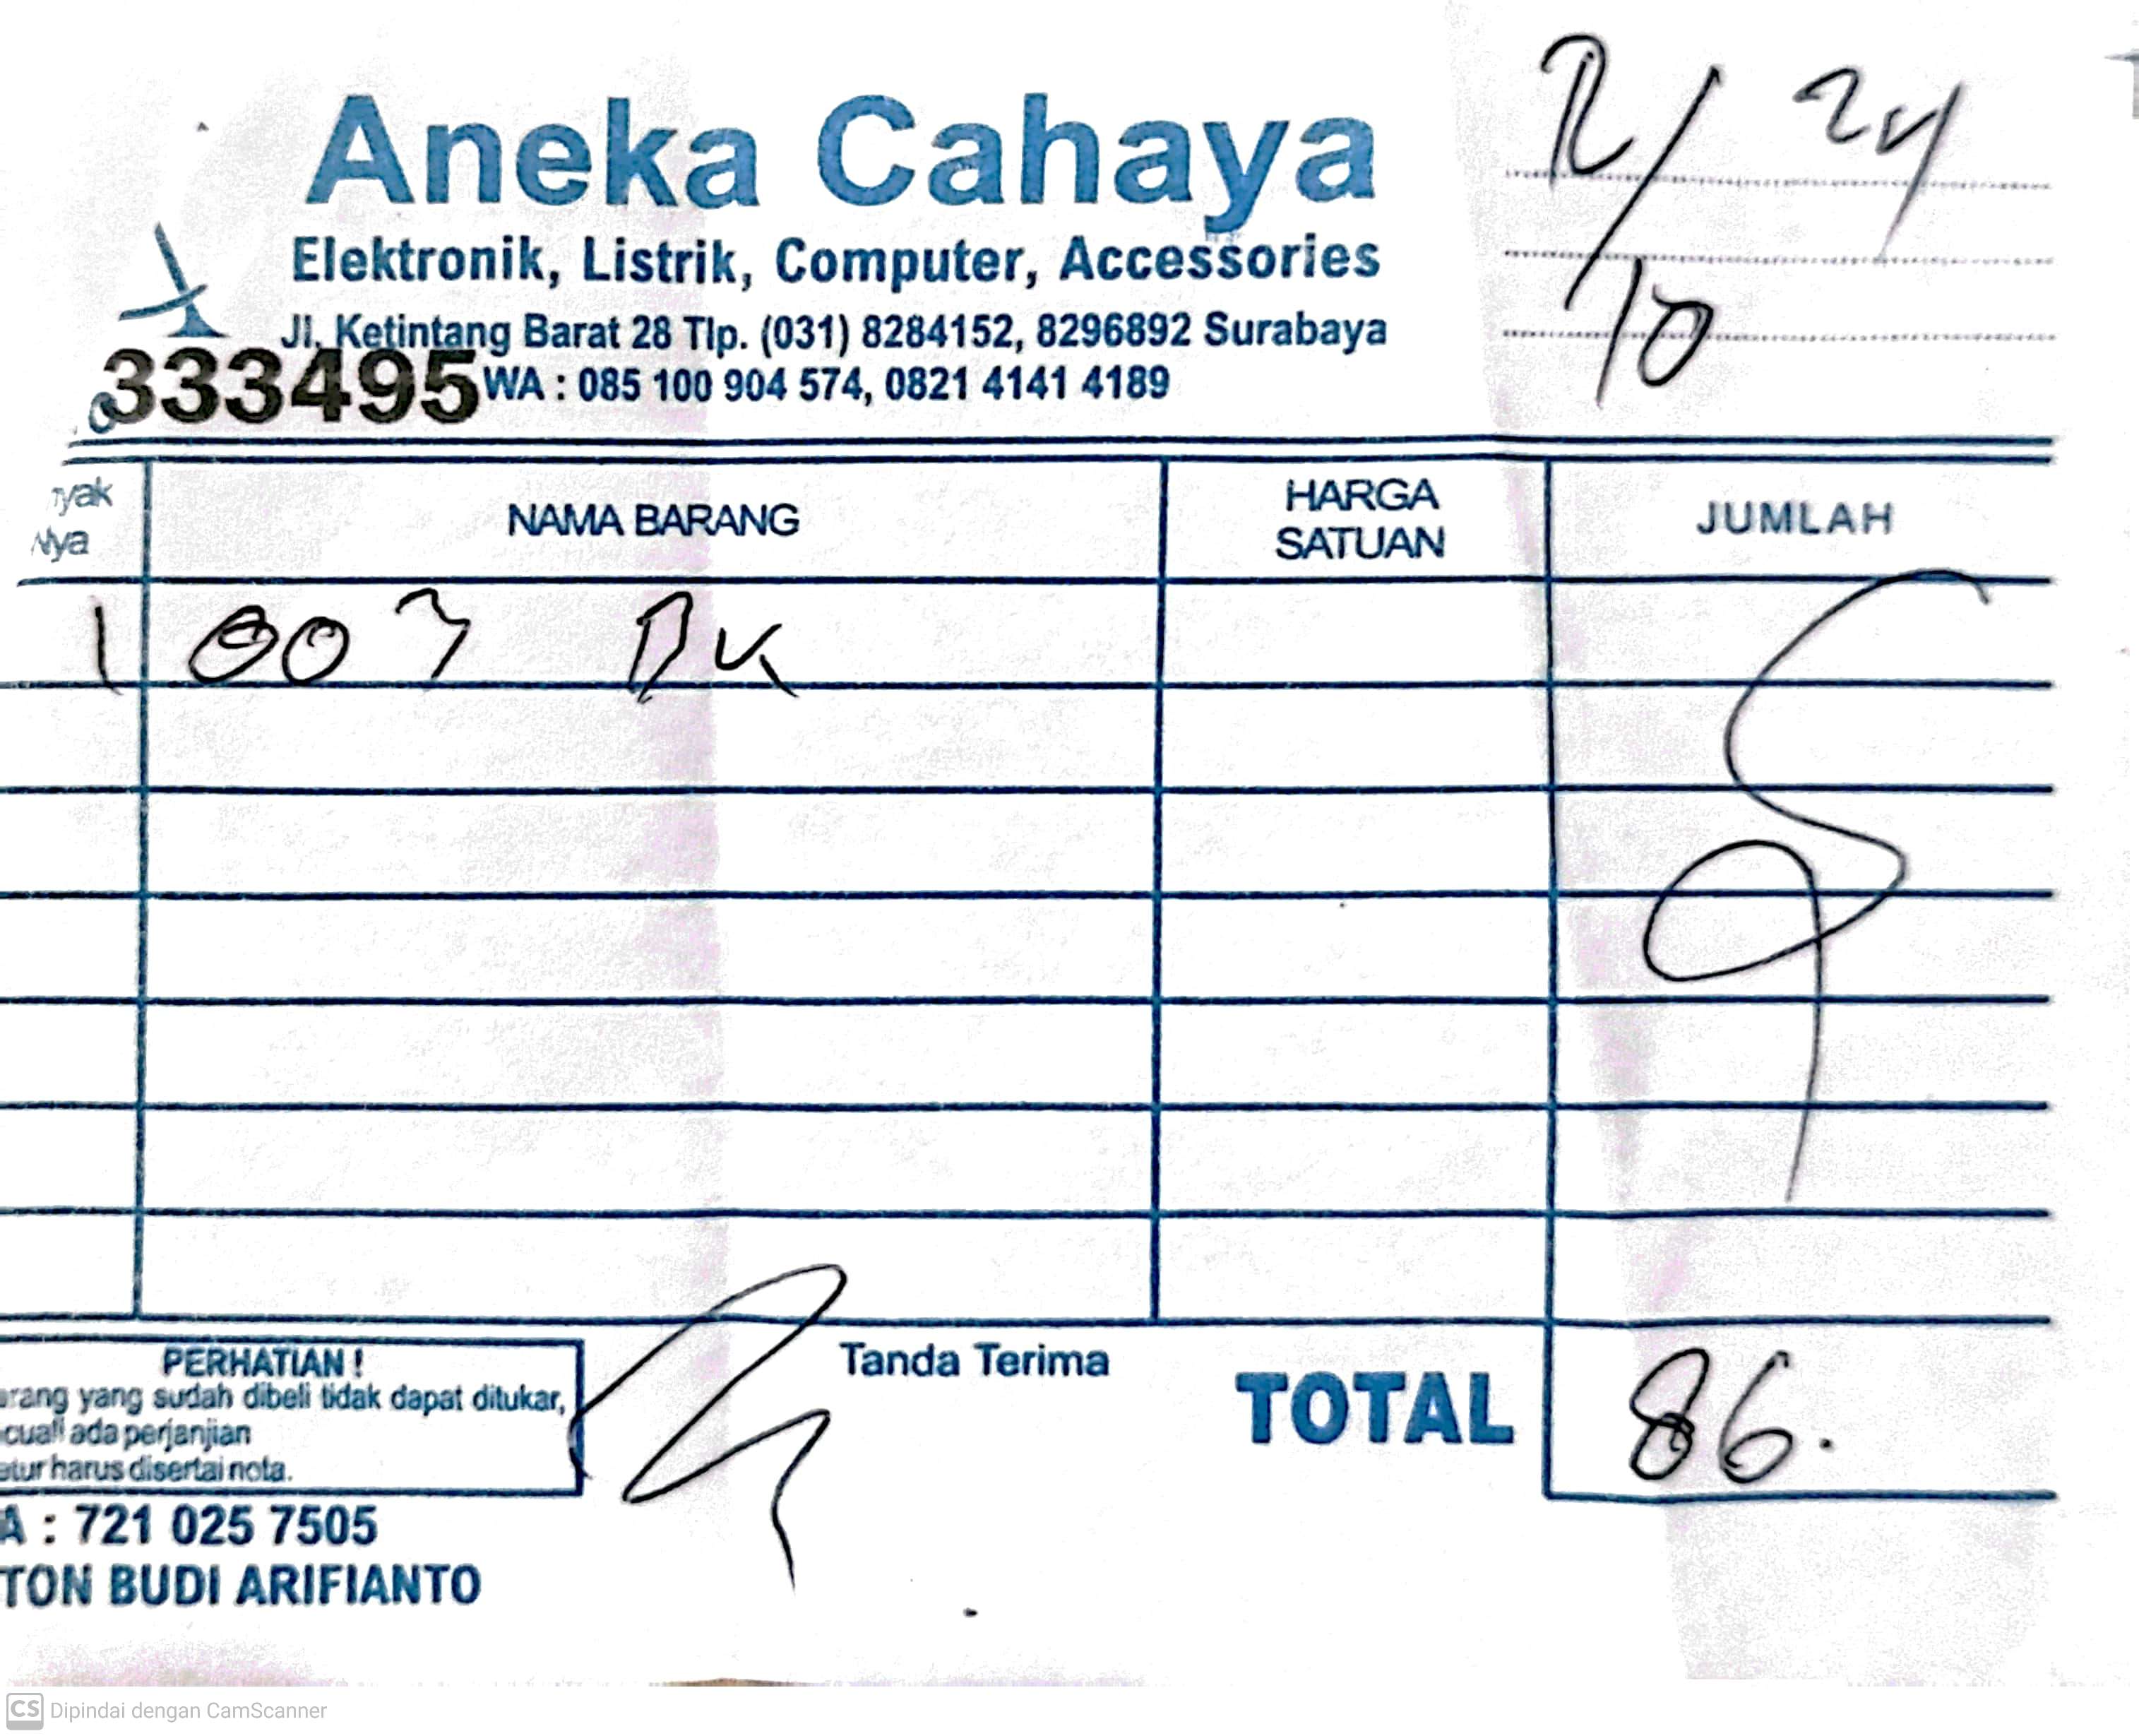 Aneka Cahaya
Elektronik, Listrik, Computer, Accessories
Jl. Ketintang Barat 28 Tlp. (031) 8284152, 8296892 Surabaya
333495 WA : 085 100 904 574, 0821 4141 4189
24
10
yak Nya NAMA BARANG HARGA SATUAN JUMLAH
1 003 BK
PERHATIAN !
arang yang sudah dibeli tidak dapat ditukar,
cuali ada perjanjian
etur harus disertai nota.
Tanda Terima
TOTAL 86.
A : 721 025 7505
TON BUDI ARIFIANTO
CS Dipindai dengan CamScanner